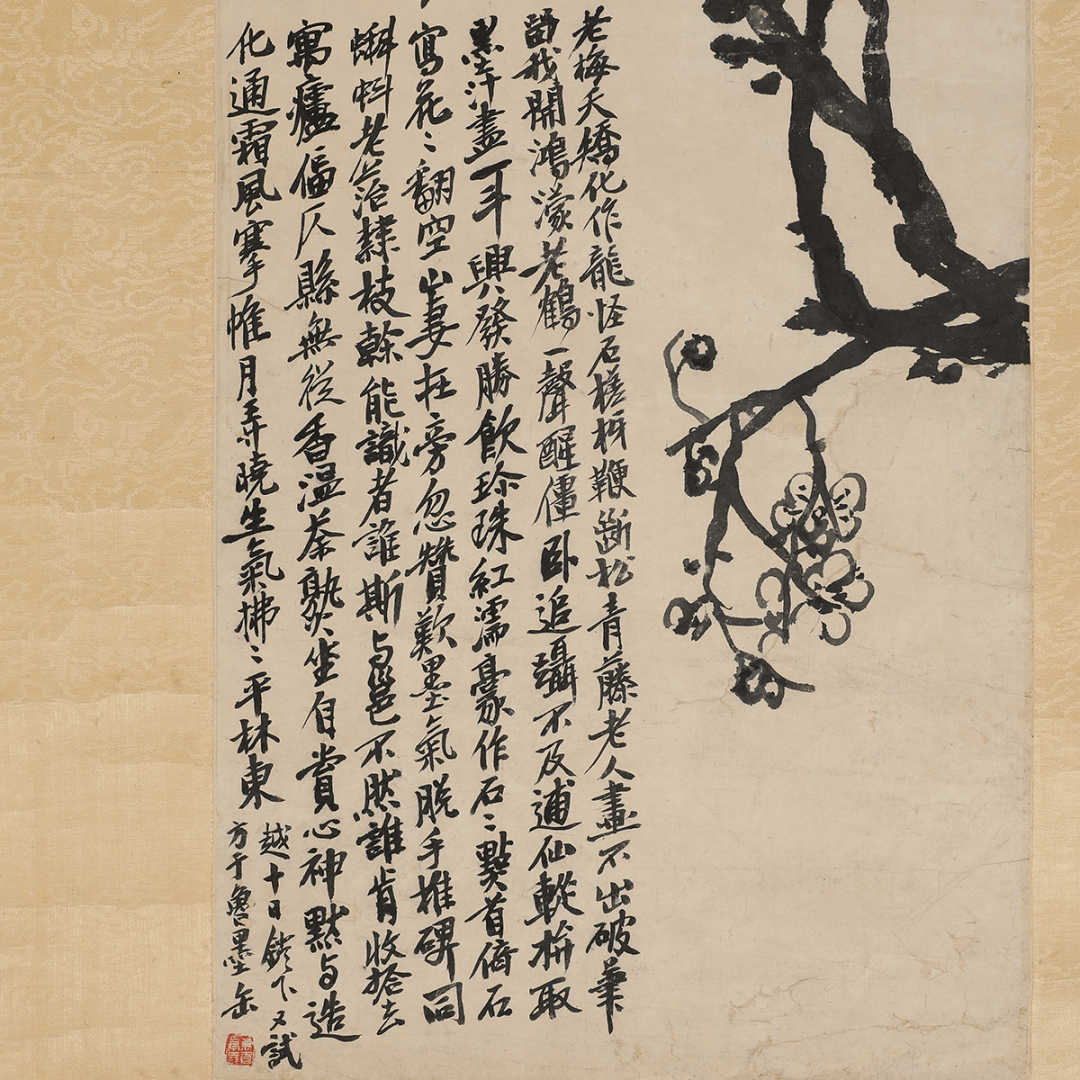 老梅夭矯化作龍怪石槎枒鞭斷松青藤老人畫不出破筆
留我開鴻濛老鶴一聲醒僵臥追躡不及逋仙蹤拚取
墨汁盡一斗興發勝飲珍珠紅濡豪作石二點首倚石
寫花二翻空山妻在旁忽贊歎墨氣脫手椎碑同
蝌蚪老苔隸枝榦能識者誰斯與邕不然誰肯收拾去
寓廬逼仄縣無從香溫茶熟坐自賞心神默與造
化通霜風搴帷月弄曉生氣拂二平林東
越十日鐙下又試
方于魯墨缶